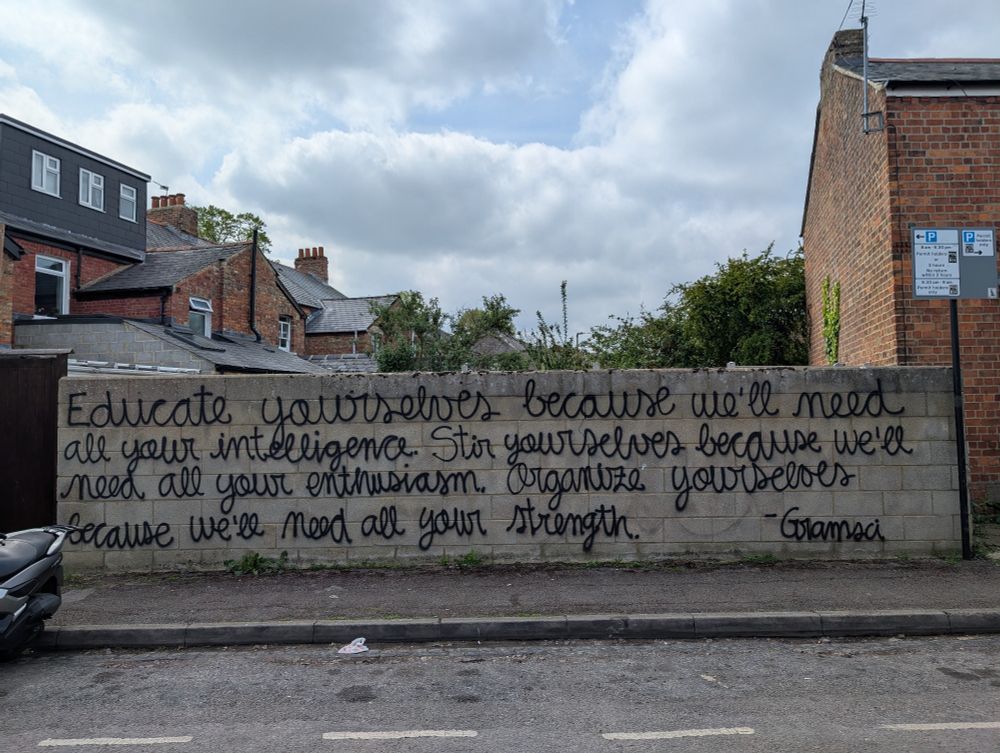 Educate yourselves because we'll need
all your intelligence. Stir yourselves because we'll
need all your enthusiasm. Organize yourselves
because we'll need all your strength.
-Gramsci
P
Permit holders
or
2 hours
No return
within 2 hours
Permit holders
only
P
Permit
holders
only